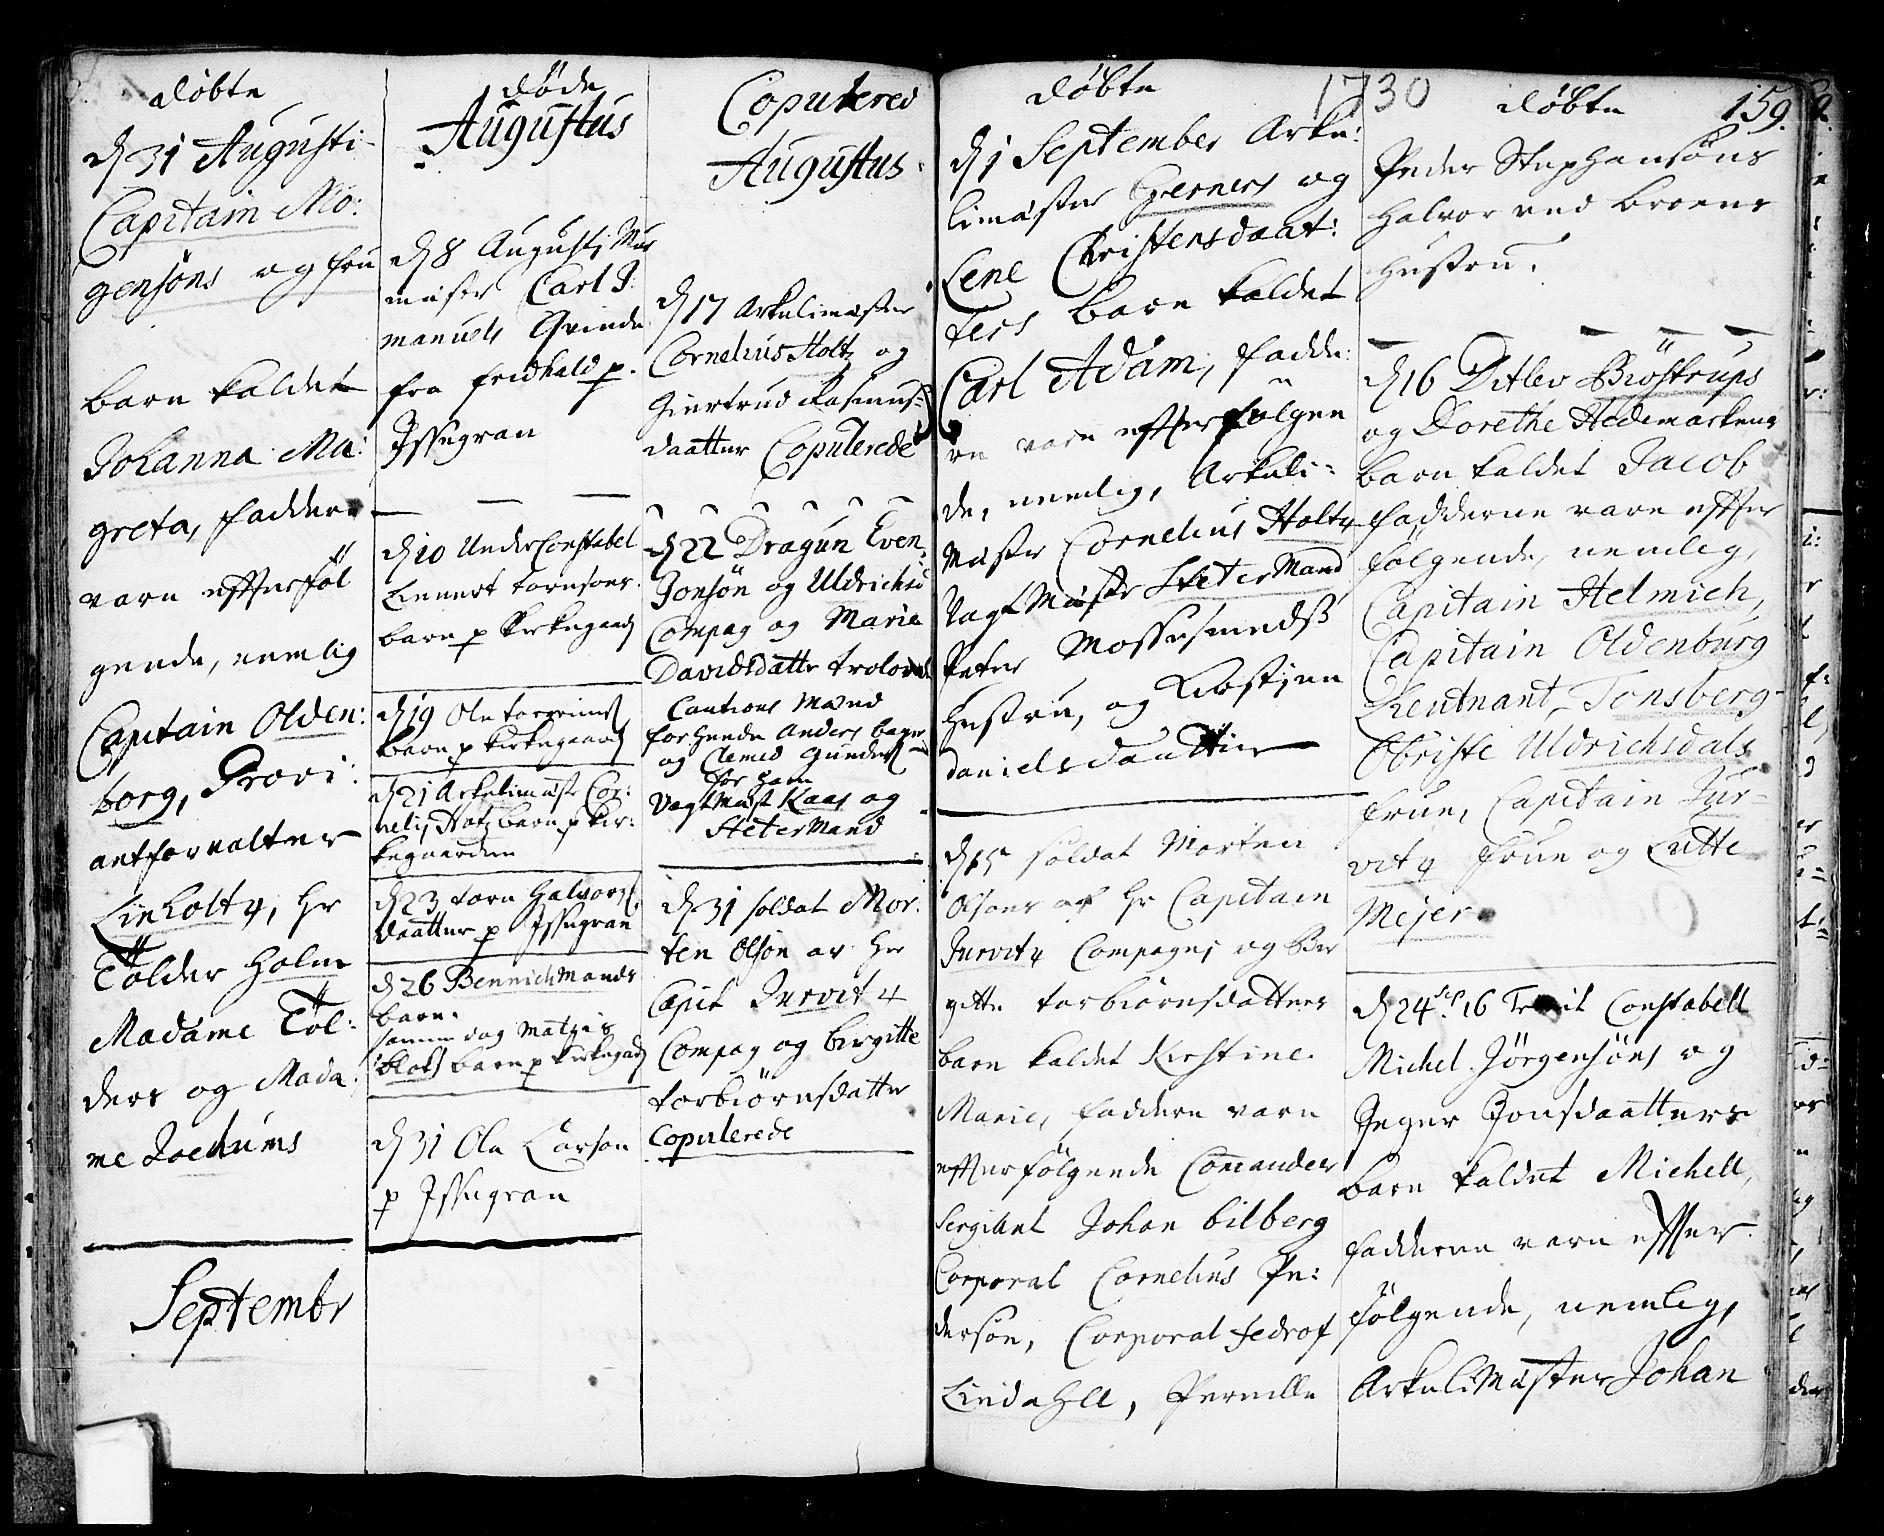 døbte
d 31 Augusti
Capitain Mo:
gensöns og fru
barn kaldet
Johanna Ma:
greta, fadder
varn effterföl
gende, nemlig
Capitain Olden:
borg, Provi:
antforvalter
Linholtz, Hr
Tölder Holm
Madame Töl:
ders og Mada:
me Jochums
Septembr
døde
Augustus
d 8 Augusti Mur
mester Carl J:
manuels Qvinde
fra fridhald p.
Issegran
d 10 UnderConstabel
Lennert tornsøns
barn p Kirkegaard
d 19 Ole
barn p kirkegaard
d 21 Arkelimest Cor:
nelis Holtz barn p kir:
kegaarden
d 23 torn Halvors
daatter p Issegran
d 26 Bennich Mands
barn.
samme dag Matzis
bloks barn p kirkegad
d 31 Ole Larson
p Issegran
Copulered
Augustus
d 17 Arkelimester
Cornelius Holtz og
Giertrud Rasmus:
daatter Copulerede
d 22 Dragun Even
Jonsön og Uldrichs
Compag og Marie
Davidsdatter trolovede
Cautions Mænd
for hende Anders
og Clemed Gunders
for ham
VagtMest Kaas og
SteterMand
d 31 soldat Mor:
ten Olsön av Hr
Capit Jurvitz
Compag og birgitte
torbiörnsdatter
Copulerede
døbte
1730
d 1 September Arke:
limester Gerners og
Lene Christensdaat:
ters barn kaldet
Carl Adam, fadde:
re varn efterfølgen
de, nemlig, Arkeli:
Mester Cornelius Holtz
VagtMester SteterMand
Peter Mossesmeds
Hustru, og Kirstine
danielsdaatter
d 15 soldat Morten
Olsöns af Hr Capitain
Jurvitz Compagni og Bir
gitte torbiörnsdatters
barn kaldet Kirstine
Marie, faddere varn
effterfölgende Comander
Sergiant Johan bilberg
Corporal Cornelius Pe:
dersön, Corporal fedrof
Lindahll, Pernille
døbte
159.
Peder Stephansöns
Halvor ved broens
Hustru.
d 16 Ditlev Bröstrups
og Dorethe Hedemarkens
barn kaldet Jacob
fadderne varn effter
følgende, nemlig,
Capitain Helmich,
Capitain Oldenburg
Leutnant Tonsberg
Obriste Uldrichsdals
frue, Capitain Jur-
vitz frue og Lutte
Mejer
d 24 Sep 16 Constabell
Michel Jörgensöns og
Inger Jonsdaatters
barn kaldet Michell,
fadderne varn effter
följende, nemlig,
ArkeliMester Johan